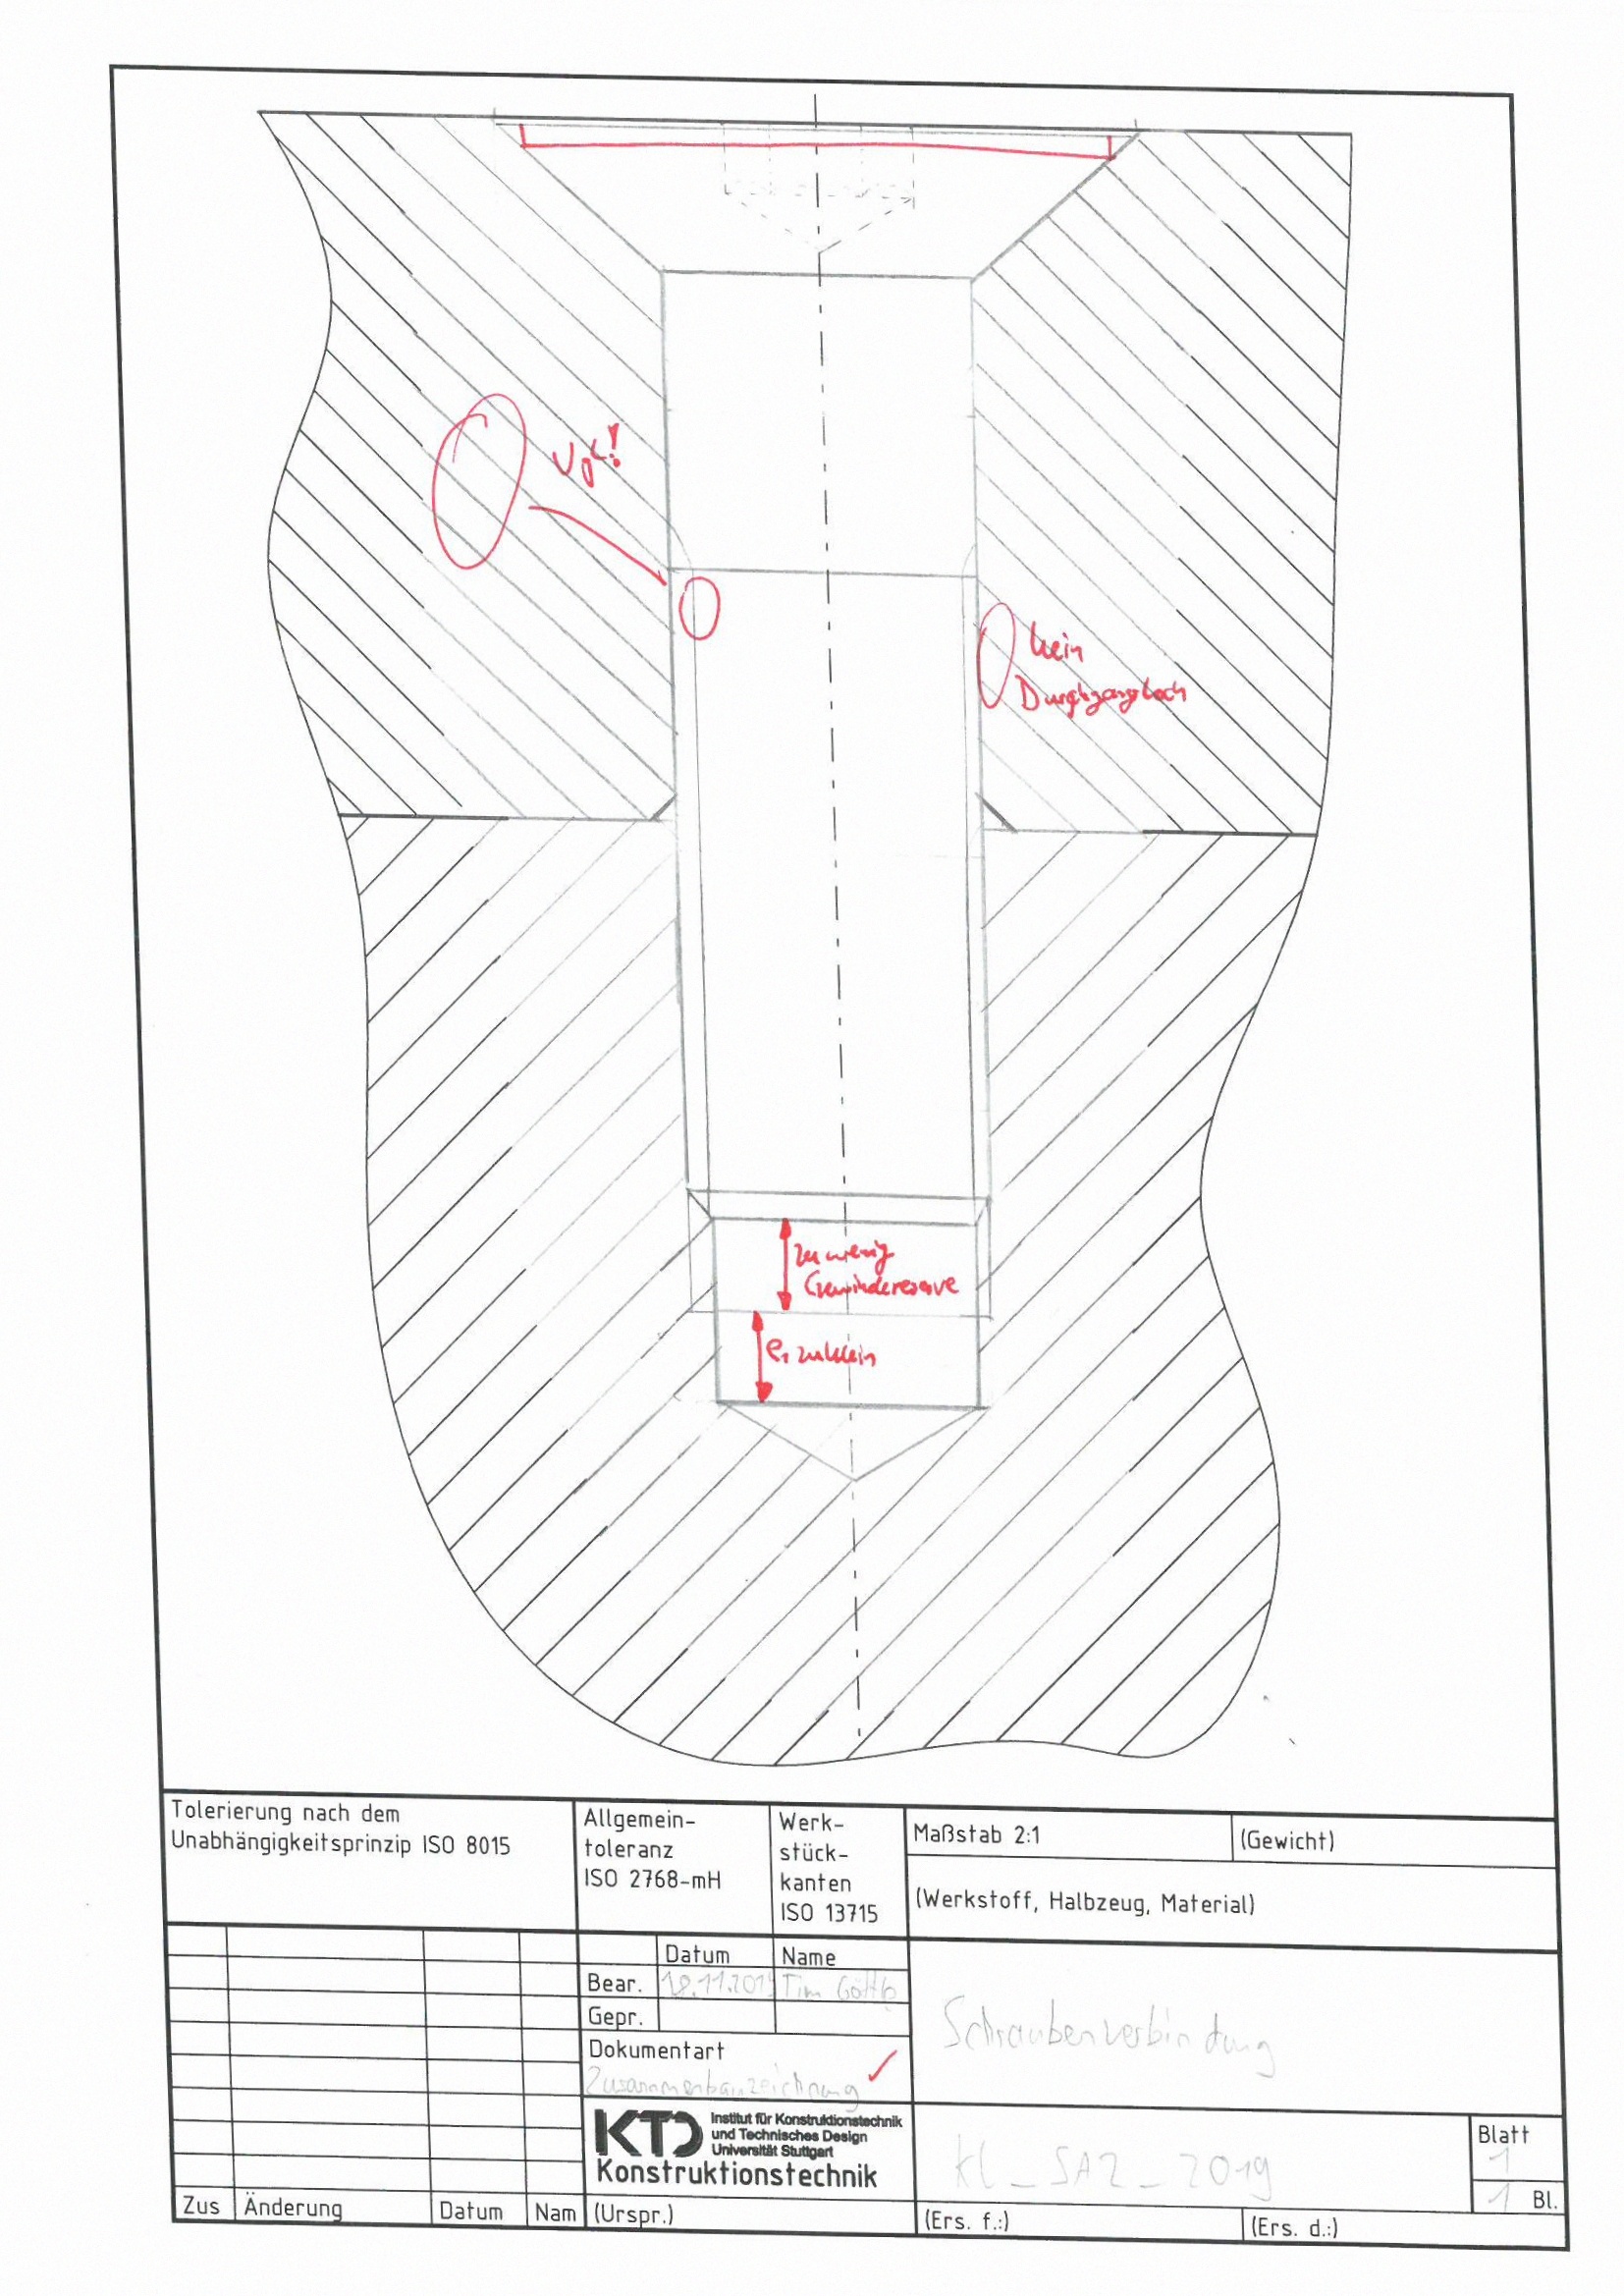 Vgl!
kein
Durchgangloch
zu wenig
Gewindereserve
e₁ zu klein
Tolerierung nach dem
Unabhängigkeitsprinzip ISO 8015
Allgemein-
toleranz
ISO 2768-mH
Werk-
stück-
kanten
ISO 13715
Maßstab 2:1
(Gewicht)
(Werkstoff, Halbzeug, Material)
Datum Name
Bear. 18.11.2019 Tim
Gepr.
Dokumentart
Zusammenbauzeichnung
Schraubenverbindung
KTD Institut für Konstruktionstechnik
und Technisches Design
Universität Stuttgart
Konstruktionstechnik
KL_SA2_2019
Blatt
1
1 Bl.
Zus Änderung Datum Nam (Urspr.)
(Ers. f.:)
(Ers. d.:)